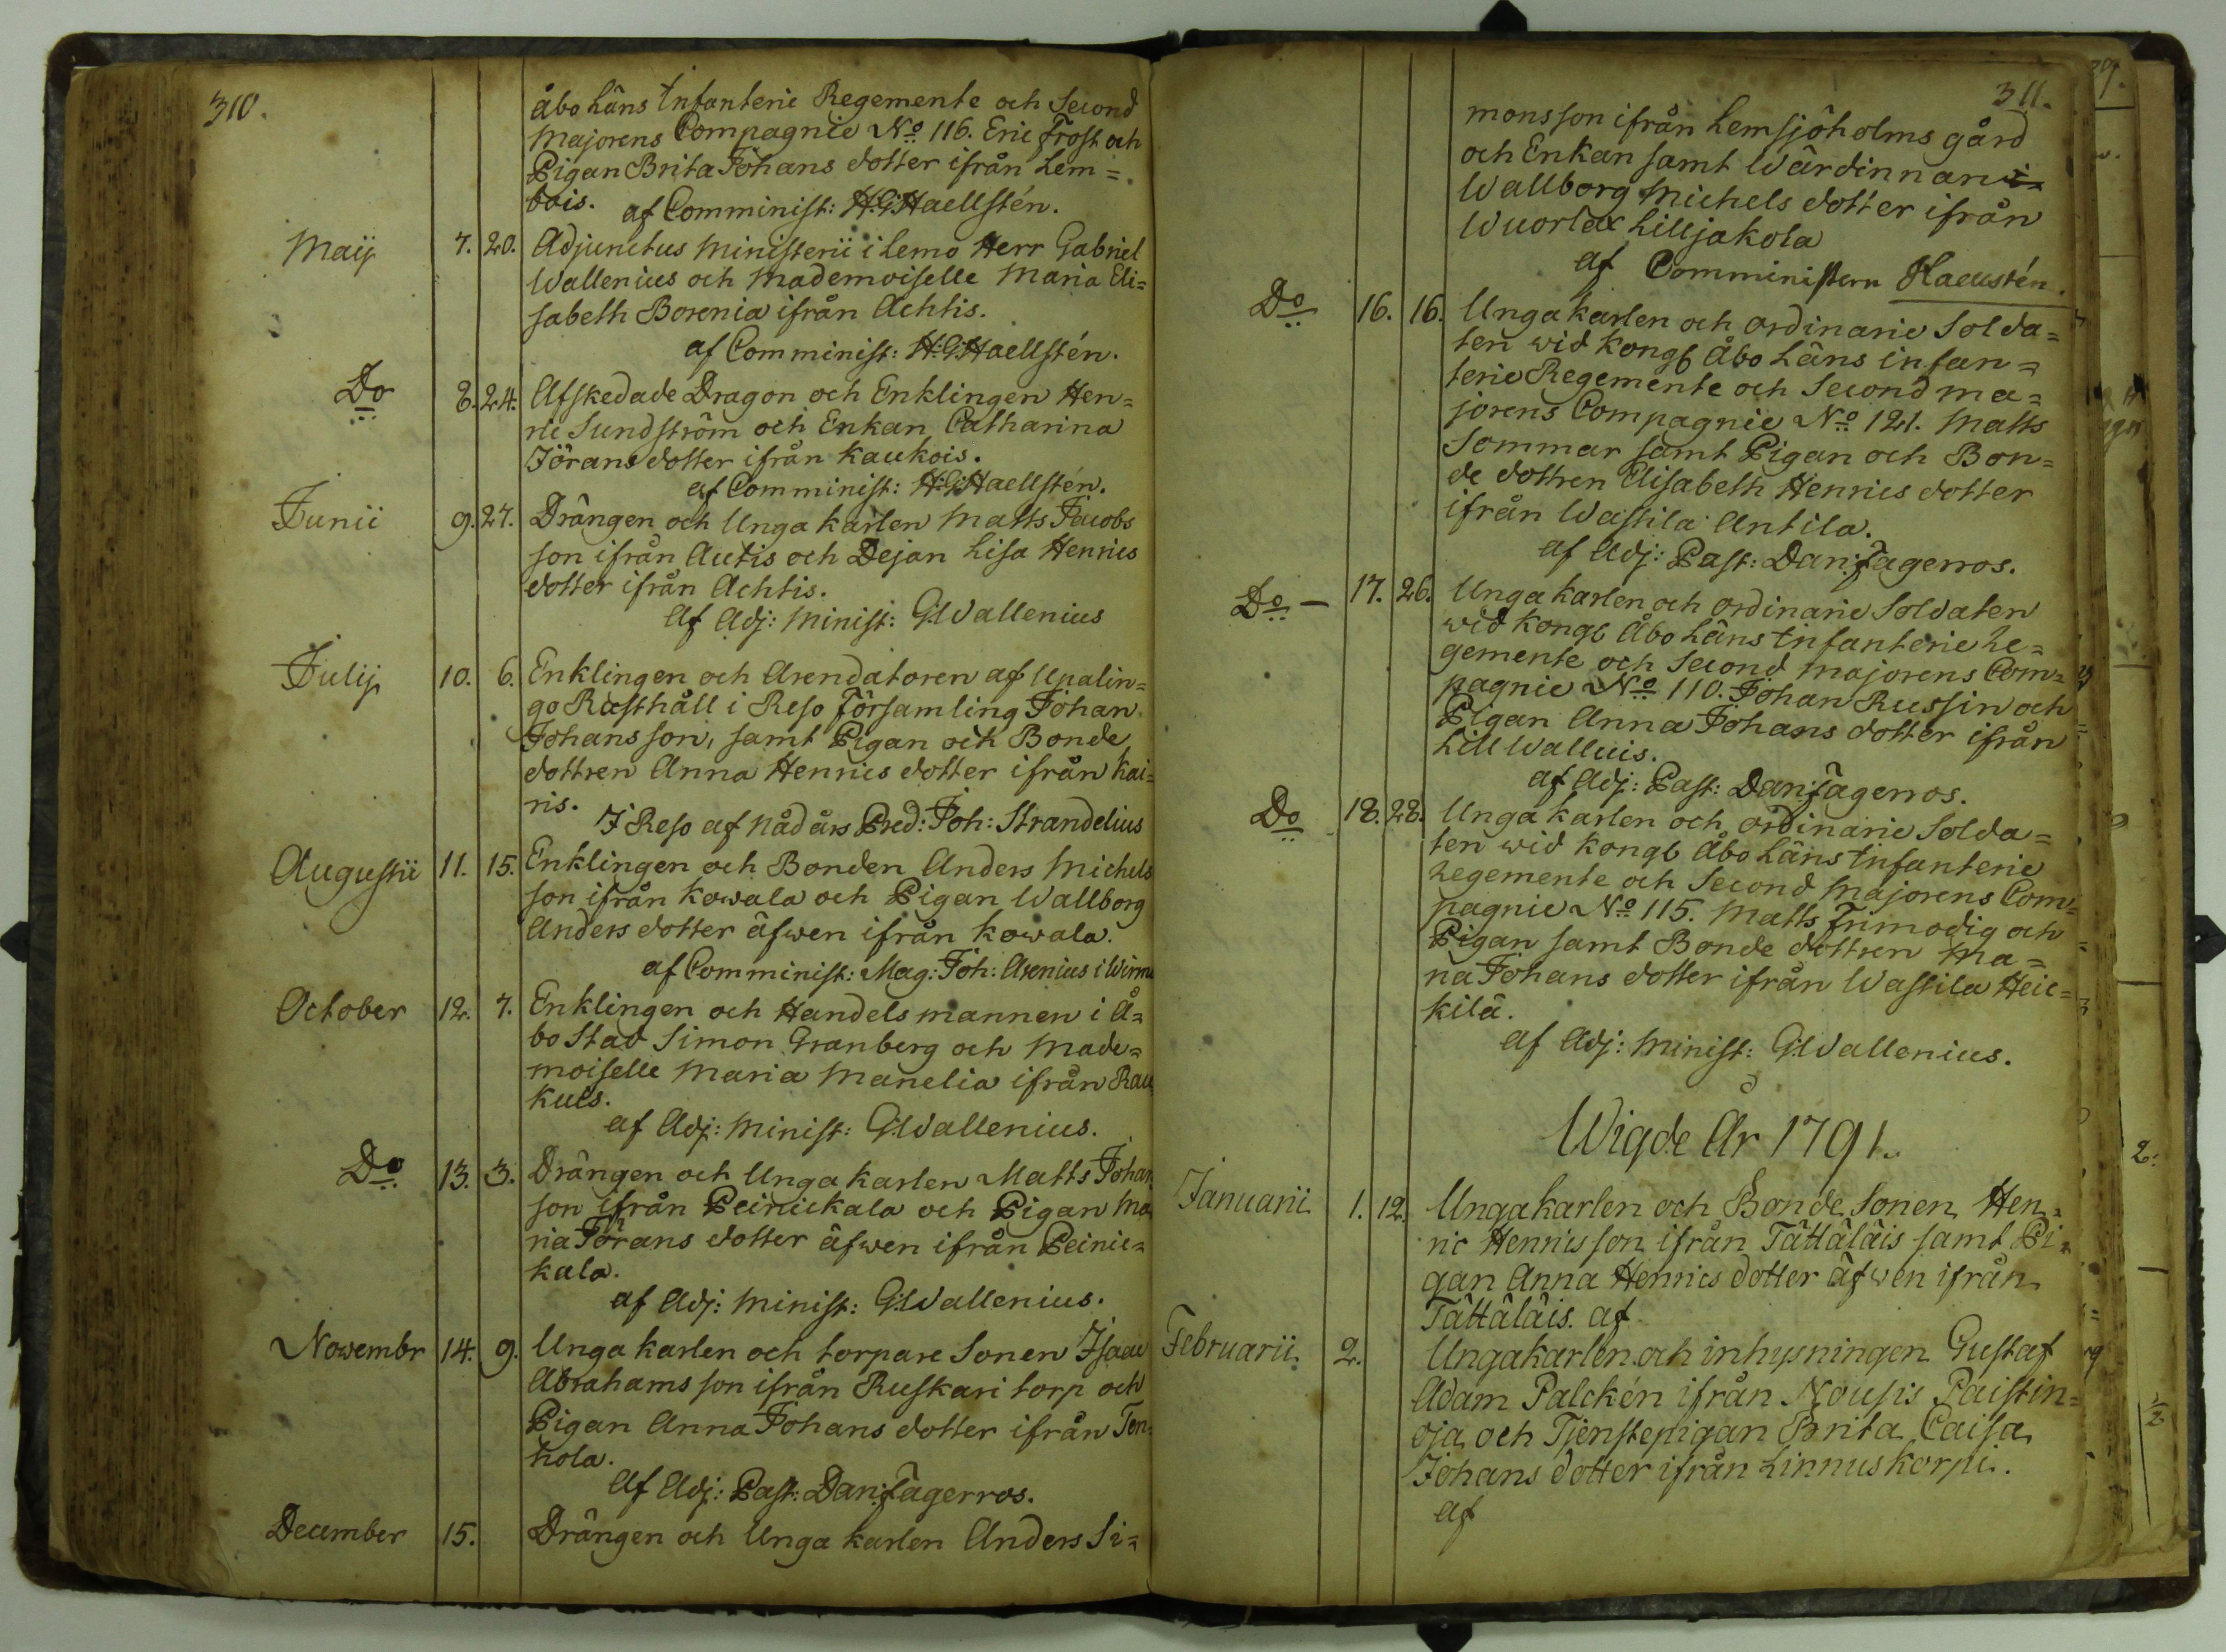 310.
åbo Läns Infanterie Regemente och Second
Majorens Compagnie No 116. Eric Frost och
Pigan Brita Johans dotter ifrån Lem=
bois. af Comminist: H:G:Haellstén.
Maij 7. 20. Adjunctus Ministerii i Lemo Herr Gabriel
Wallenius och Mademoiselle Maria Eli=
sabeth Borenia ifrån Achtis.
af Comminist: H:G:Haellstén.
Do 8. 24. Afskedade Dragon och Enklingen Hen=
ric Sundström och Enkan Catharina
Jörans dotter ifrån Kaukois.
af Comminist: H:G:Haellstén.
Junii 9. 27. Drängen och Unga karlen Matts Jacobs
son ifrån Autis och Dejan Lisa Henrics
dotter ifrån Achtis.
Af Adj: Minist: G:Wallenius
Julij 10. 6. Enklingen och Arendatoren af Upalin=
go Rusthåll i Reso Församling Johan
Johans son, samt Pigan och Bonde
dottren Anna Henrics dotter ifrån Kai=
ris. I Reso af Nådårs Pred: Joh: Strandelius
Augustii 11. 15. Enklingen och Bonden Anders Michels
son ifrån Kowala och Pigan Wallborg
Anders dotter äfwen ifrån Kowala.
af Comminist: Mag: Joh: Arenius i Wirmo
October 12. 7. Enklingen och Handels mannen i Å=
bo Stad Simon Granberg och Made=
moiselle Maria Manelia ifrån Rau
kuis.
af Adj: Minist: G:Wallenius.
Do 13. 3. Drängen och Unga karlen Matts Johan
son ifrån Peinickala och Pigan Ma
ria Jörans dotter äfwen ifrån Peinic=
kala.
af Adj: Minist: G:Wallenius.
Nowembr 14. 9. Unga karlen och torpare Sonen Isaac
Abrahams son ifrån Ruskari torp och
Pigan Anna Johans dotter ifrån Ten=
hola.
Af Adj: Past: Dan:Fagerros.
December 15. Drängen och Unga karlen Anders Si=
311.
mons son ifrån Lemsjöholms gård
och Enkan samt Wärdinnan
Wallborg Michels dotter ifrån
Wuorlax Lilljakola
af Comministern Haellstén.
Do 16. 16. Unga karlen och ordinarie Solda=
ten wid Kongl Åbo Läns infan=
terie Regemente och Second ma=
jorens Compagnie No 121. Matts
Sommar samt Pigan och Bon=
de dottren Elisabeth Henrics dotter
ifrån Wastila Antila.
af Adj: Past: Dan:Fagerros.
Do 17. 26. Unga karlen och ordinarie Soldaten
wid Kongl Åbo Läns Infanterie Re=
gemente och Second Majorens Com=
pagnie No 110. Johan Russin och
Pigan Anna Johans dotter ifrån
Lill Walluis.
af Adj: Past: Dan:Fagerros.
Do 18. 28. Unga karlen och ordinarie Solda=
ten wid Kongl Åbo Läns Infanterie
Regemente och Second Majorens Com=
pagnie No 115. Matts Frimodig och
Pigan samt Bonde dottren Ma=
ria Johans dotter ifrån Wastila Heic=
kilä.
af Adj: Minist: G:Wallenius.
Wigde År 1791.
Januarii 1. 12. Ungakarlen och Bonde Sonen Hen=
ric Henrics son ifrån Tättäläis samt Pi=
gan Anna Henrics dotter äfwen ifrån
Tättäläis. af
Februarii 2. Ungakarlen och inhysningen Gustaf
Adam Palckén ifrån Nousis Paistin=
oja och Tjenstepigan Brita Caisa
Johans dotter ifrån Linnuskorpi.
af